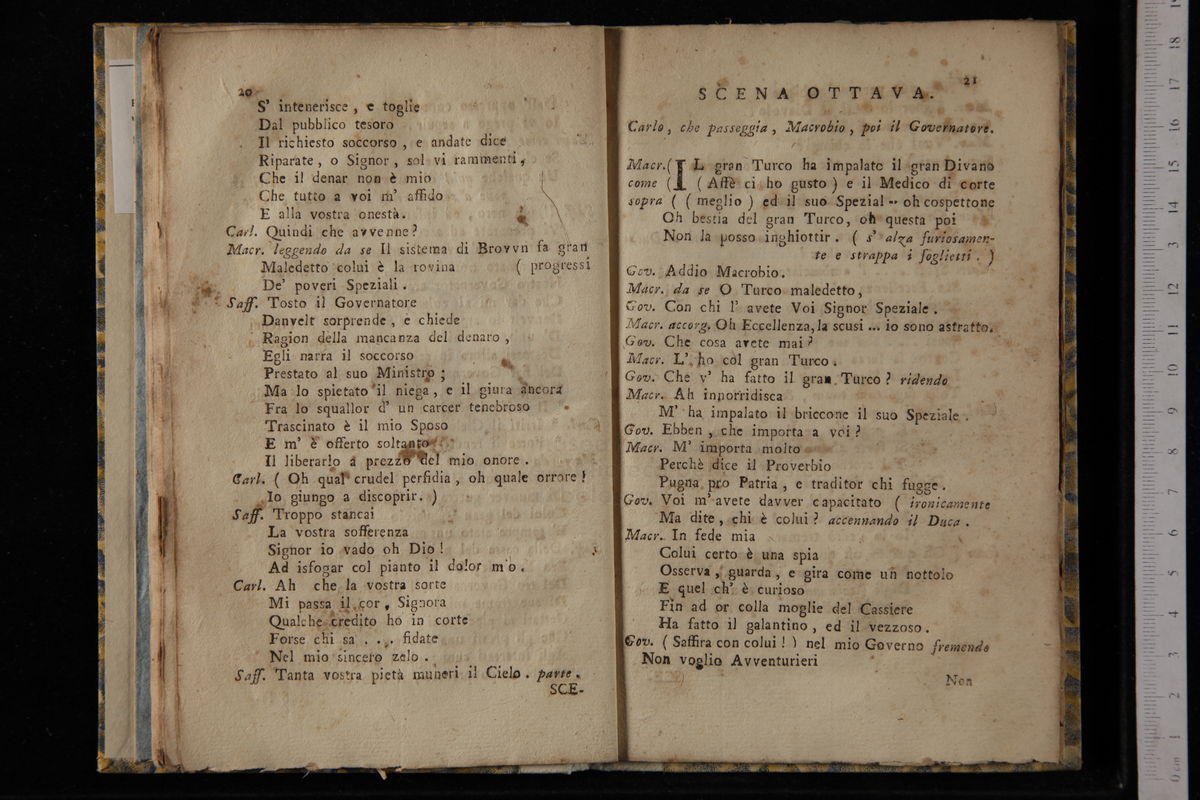 20
S' intenerisce , e toglie
Dal pubblico tesoro
Il richiesto soccorso , e andate dice
Riparate , o Signor , sol vi rammenti,
Che il denar non è mio
Che tutto a voi m' affido
E alla vostra onestà.
Carl. Quindi che avvenne ?
Macr. leggendo da se Il sistema di Brovvn fa gran
Maledetto colui è la rovina ( progressi
De' poveri Speziali .
Saff. Tosto il Governatore
Danvelt sorprende , e chiede
Ragion della mancanza del denaro ,
Egli narra il soccorso
Prestato al suo Ministro ;
Ma lo spietato il niega , e il giura ancora
Fra lo squallor d' un carcer tenebroso
Trascinato è il mio Sposo
E m' è offerto soltanto
Il liberarlo a prezzo del mio onore .
Carl. ( Oh qual crudel perfidia , oh quale orrore !
Io giungo a discoprir. )
Saff. Troppo stancai
La vostra sofferenza
Signor io vado oh Dio !
Ad isfogar col pianto il dolor m'o .
Carl. Ah che la vostra sorte
Mi passa il cor , Signora
Qualche credito ho in corte
Forse chi sa . . . fidate
Nel mio sincero zelo .
Saff. Tanta vostra pietà muneri il Cielo . parte .
SCE-
21
SCENA OTTAVA.
Carlo, che passeggia , Macrobio , poi il Governatore.
Macr.( IL gran Turco ha impalato il gran Divano
come ( ( Affè ci ho gusto ) e il Medico di corte
sopra ( ( meglio ) ed il suo Spezial -- oh cospettone
Oh bestia del gran Turco, oh questa poi
Non la posso inghiottir . ( s' alza furiosamen-
te e strappa i foglietti . )
Gov. Addio Macrobio.
Macr. da se O Turco maledetto,
Gov. Con chi l' avete Voi Signor Speziale .
Macr. accorg. Oh Eccellenza, la scusi ... io sono astratto.
Gov. Che cosa avete mai ?
Macr. L' ho col gran Turco .
Gov. Che v' ha fatto il gran Turco ? ridendo
Macr. Ah inporridisca
M' ha impalato il briccone il suo Speziale .
Gov. Ebben , che importa a voi ?
Macr. M' importa molto
Perchè dice il Proverbio
Pugna pro Patria , e traditor chi fugge .
Gov. Voi m' avete davver capacitato ( ironicamente
Ma dite , chi è colui ? accennando il Duca .
Macr. In fede mia
Colui certo è una spia
Osserva , guarda , e gira come un nottolo
E quel ch' è curioso
Fin ad or colla moglie del Cassiere
Ha fatto il galantino , ed il vezzoso .
Gov. ( Saffira con colui ! ) nel mio Governo fremendo
Non voglio Avventurieri
Non